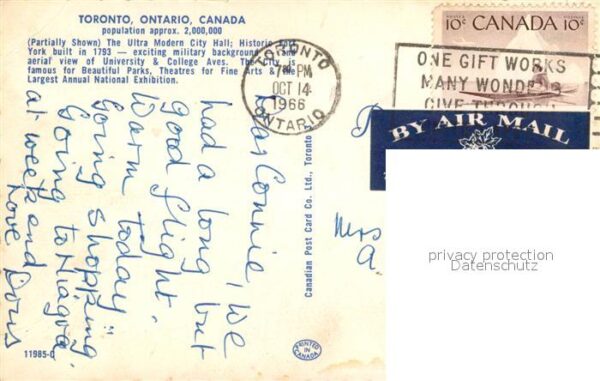 TORONTO, ONTARIO, CANADA
population approx. 2,000,000
(Partially Shown) The Ultra Modern City Hall; Historic Fort
York built in 1793 — exciting military background and
aerial view of University & College Aves. The City is
famous for Beautiful Parks, Theatres for Fine Arts & the
Largest Annual National Exhibition.
TORONTO
7 PM
OCT 14
1966
ONTARIO
10¢ CANADA 10¢
ONE GIFT WORKS
MANY WONDERS
GIVE THROUGH
BY AIR MAIL
Dear Connie, we
had a long but
good flight.
Warm today
Going shopping
Going to Niagra
at weekend
Love Doris
Canadian Post Card Co. Ltd., Toronto
Mrs
A
privacy protection
Datenschutz
PRINTED
IN
CANADA
11985-C